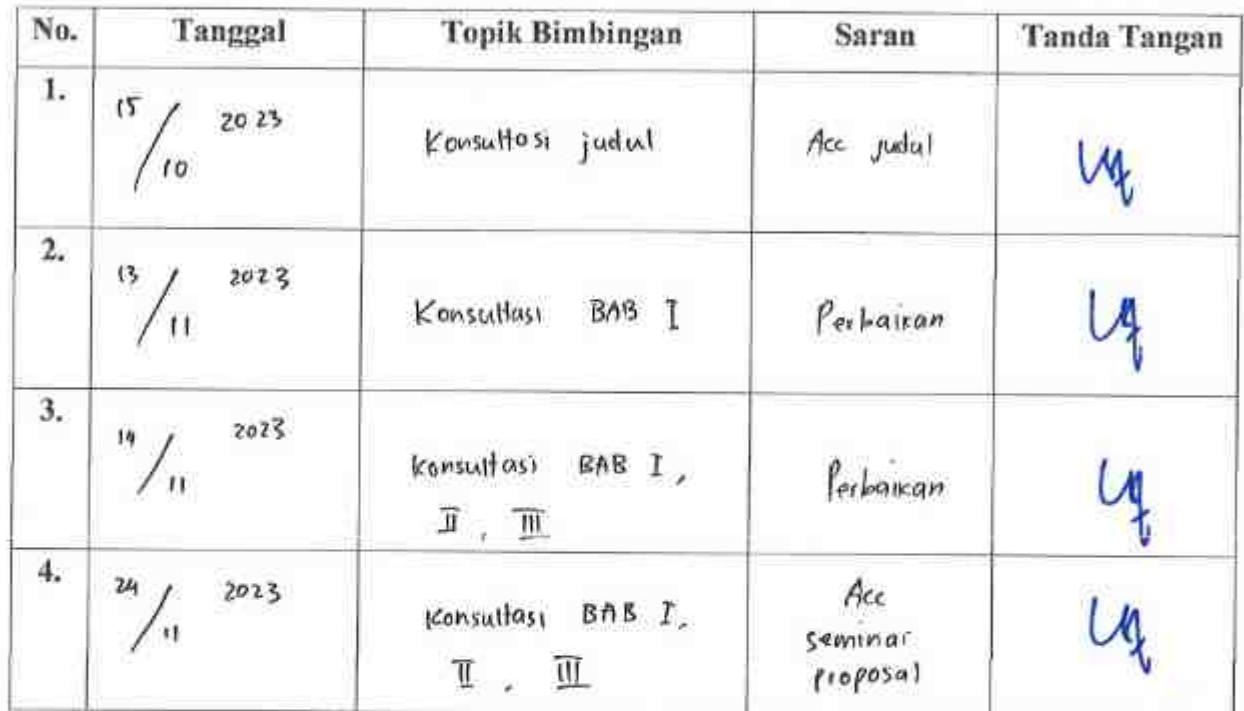 No. Tanggal Topik Bimbingan Saran Tanda Tangan
1. 15/10 2023 Konsultasi judul Acc judul
2. 13/11 2023 Konsultasi BAB I Perbaikan
3. 14/11 2023 Konsultasi BAB I, Perbaikan
II, III
4. 24/11 2023 Konsultasi BAB I, Acc
II, III seminar
proposal